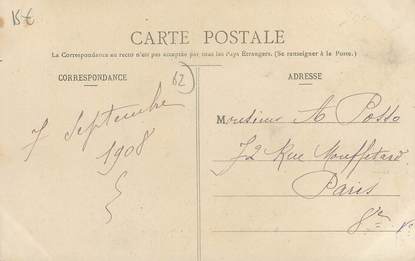 15€
CARTE POSTALE
La Correspondance au recto n'est pas acceptée par tous les Pays Étrangers. (Se renseigner à la Poste.)
CORRESPONDANCE
62
ADRESSE
7 Septembre
1908
Monsieur A Posso
72 Rue Mouffetard
Paris